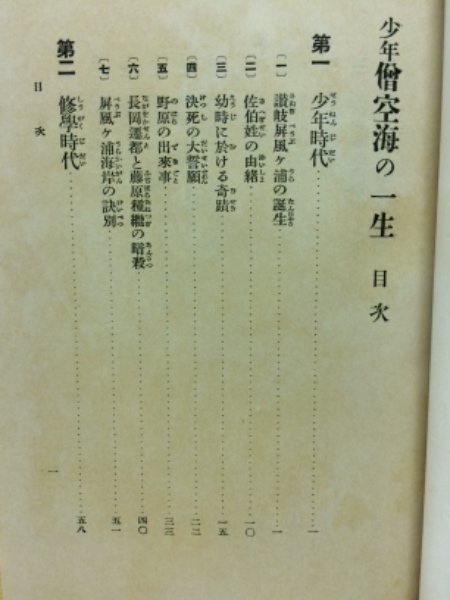 少年僧空海の一生 目次
第一 少年時代……一
〔一〕 讃岐屏風ヶ浦の誕生……一
〔二〕 佐伯姓の由緒……一〇
〔三〕 幼時に於ける奇蹟……一五
〔四〕 決死の大誓願……二二
〔五〕 野原の出來事……三三
〔六〕 長岡遷都と藤原種繼の暗殺……四〇
〔七〕 屏風ヶ浦海岸の訣別……五一
第二 修學時代……五八
目次
一